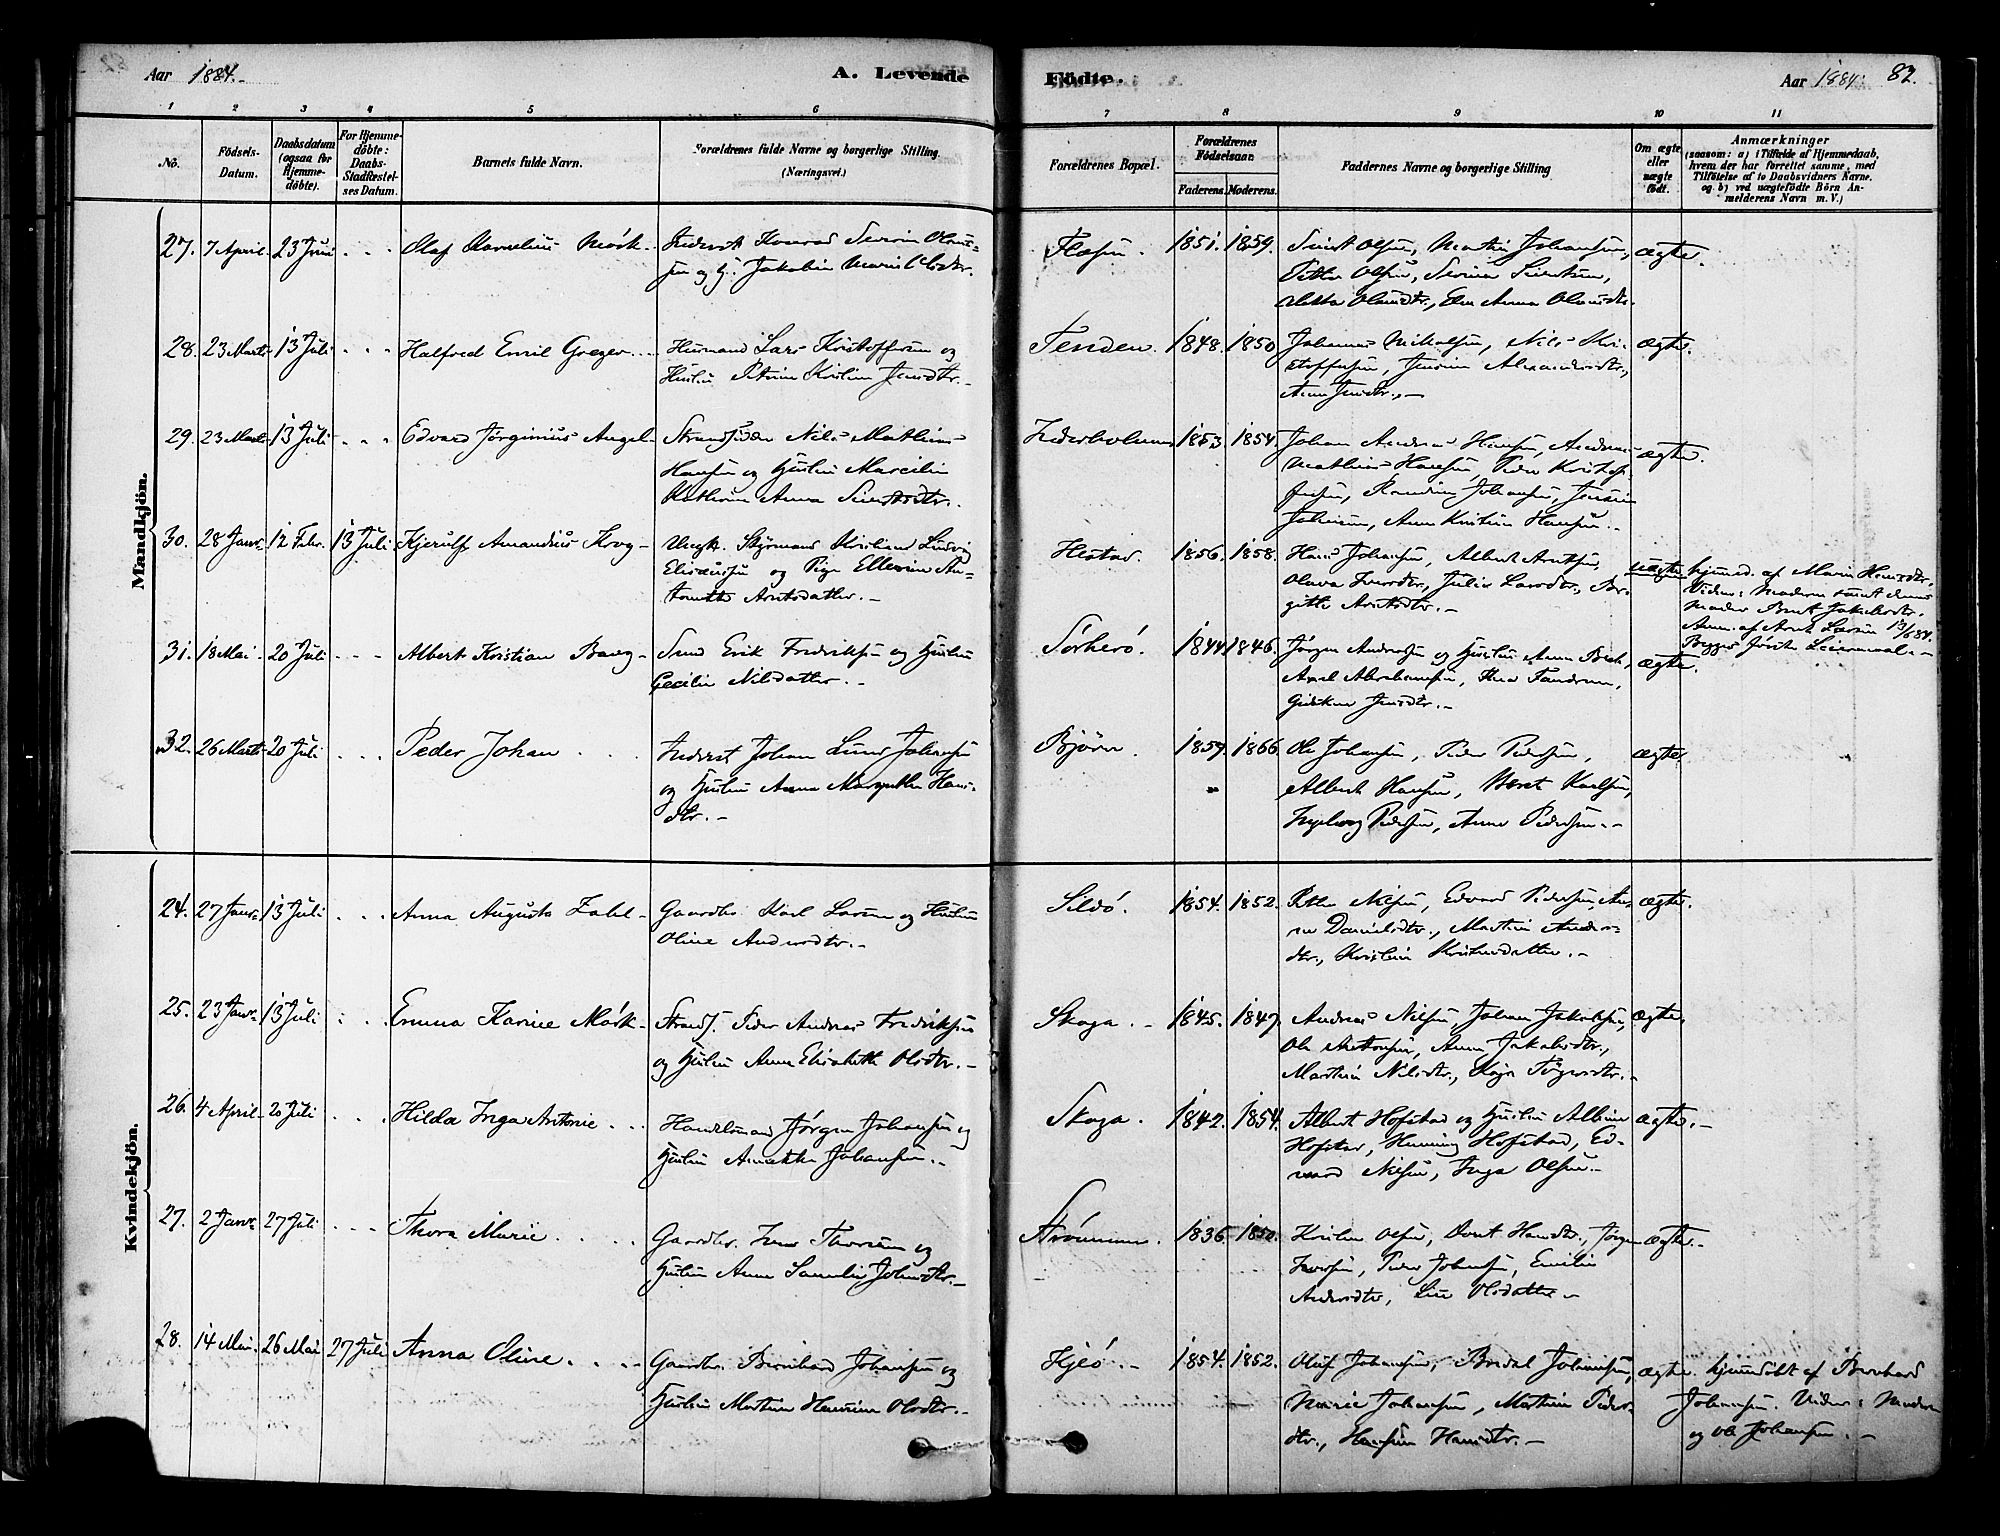 Aar 1884.
A. Levende Födte.
Aar 1884. 82.
1 2 3 4 5 6 7 8 9 10 11
No.
Födsels-Datum.
Daabsdatum (ogsaa for Hjemmedöbte).
For Hjemmedöbte: Daabs-Stadfæstelses Datum.
Barnets fulde Navn.
Forældrenes fulde Navne og borgerlige Stilling (Næringsvei.)
Forældrenes Bopæl.
Forældrenes Födselsaar.
Faderens. Moderens.
Faddernes Navne og borgerlige Stilling
Om ægte eller uægte födt.
Anmærkninger
(saasom: a) i Tilfælde af Hjemmedaab, hvem der har forrettet samme, med Tilföielse af to Daabsvidners Navne, og b) ved uægtefödte Börn Anmelderens Navn m. V.)
Mandkjön.
27. 7 April 23 Juni Olaf Kornelius Mørk Inderst Konrad Severin
og Hu. Jakobin Marie
1851. 1859. Olsen, Martin Johansen, ægte.
Petter Olsen, Serina
Anna
28. 23 Marts 13 Juli Halfred Emil Greger Husmand Lars Kristoffersen og
Hustru Petrine Kristine Jensdtr.
Tenden. 1848. 1850 Johannes Mikalsen, Nils Kri- ægte.
stoffersen, Jensine Alexandersdtr.,
Anne Jensdtr.
29. 23 Marts 13 Juli Edvard Jørginius Angel Strandsidder Nils Mathias
Hansen og Hustru Marcelie
Kathrine Anna
Inderholmen 1853. 1854. Johan Andreas Hansen, Andreas ægte.
Mathias Hansen, Peder Kristof-
fersen, Johansen, Jensine
Johansen, Anne Kristine Hansen.
30. 28 Janr. 12 Febr. 13 Juli Kjerulf Amandius Krog Ungk. Styrmand Kristian Ludvig
Elisæussen og Pige Ellevine An-
tonette Arntsdatter.
Hestad. 1856. 1858. Hans Johansen, Albert Arntsen, uægte
Olava Iversdtr., Julie Larsdtr., Bir-
gitte Arntsdtr.
hjemmed. af Maren Hansdtr.
Vidner: Moderen samt dennes
Moder Berit Jakobsdtr.
Anm. af Arnt Larsen 13/6 84.
Begges første Leiermaal.
31. 18 Mai 20 Juli Albert Kristian Bang Smed Erik Fredriksen og Hustru
Cecilie Nilsdatter.
Sørherø. 1844 1846. Jørgen Andersen og Hustru Anne Berit, ægte.
Axel Abrahamsen, Thea
Jensdtr.
32. 26 Marts 20 Juli Peder Johan Inderst Johan Lund Johansen
og Hustru Anna Margrethe Hans-
dtr.
Bjørn. 1859. 1866 Ole Johansen, Peder Pedersen, ægte
Albert Hansen, Beret Karlsen,
Ingeborg Pedersen, Anne Pedersen.
Kvindekjön.
24. 27 Janr. 13 Juli Anna Augusta Zahl Gaardbr. Karl Larsen og Hustru
Oline Andersdtr.
Sildø. 1854. 1852. Petter Nilsen, Edvard Pedersen, An- ægte.
ne Danielsdtr., Martine Anders-
dtr., Kristine Kristensdatter.
25. 23 Janr. 13 Juli Emma Karine Mørk Strands. Peder Andreas Fredriksen
og Hustru Anne Elisabeth Olsdtr.
Skoga. 1845. 1847. Andreas Nilsen, Johan Jakobsen, ægte.
Ole Antonsen, Anne Jakobsdtr.,
Marthine Nilsdtr., Kaja
26. 4 April 20 Juli Hilda Inga Antonie Handelsmand Jørgen Johansen og
Hustru Annette Johansen.
Skoga. 1842. 1854. Albert Hofstad og Hustru Albine ægte.
Hofstad, Henning Hofstad, Ed-
vard Nilsen, Inga Olsen.
27. 2 Janr. 27 Juli Thora Marie Gaardbr. Iver Thorsen og
Hustru Anne Johnsdtr.
Strømmen. 1836 1850. Kristen Olsen, Berit Hansdtr., Jørgen ægte.
Iversen, Peder Johansen, Emilie
Andersdtr, Line Olsdatter
28. 14 Mai. 26 Mai 27 Juli Anna Oline Gaardbr. Bernhard Johansen og
Hustru Martine Hansine Olsdtr.
Hjeø. 1854. 1852. Oluf Johansen, Johansen, ægte.
Marie Johansen, Martine Peders-
dtr., Hansine Hansdtr.
hjemmedöbt af Bernhard
Johansen. Vidner: Moder
og Ole Johansen.